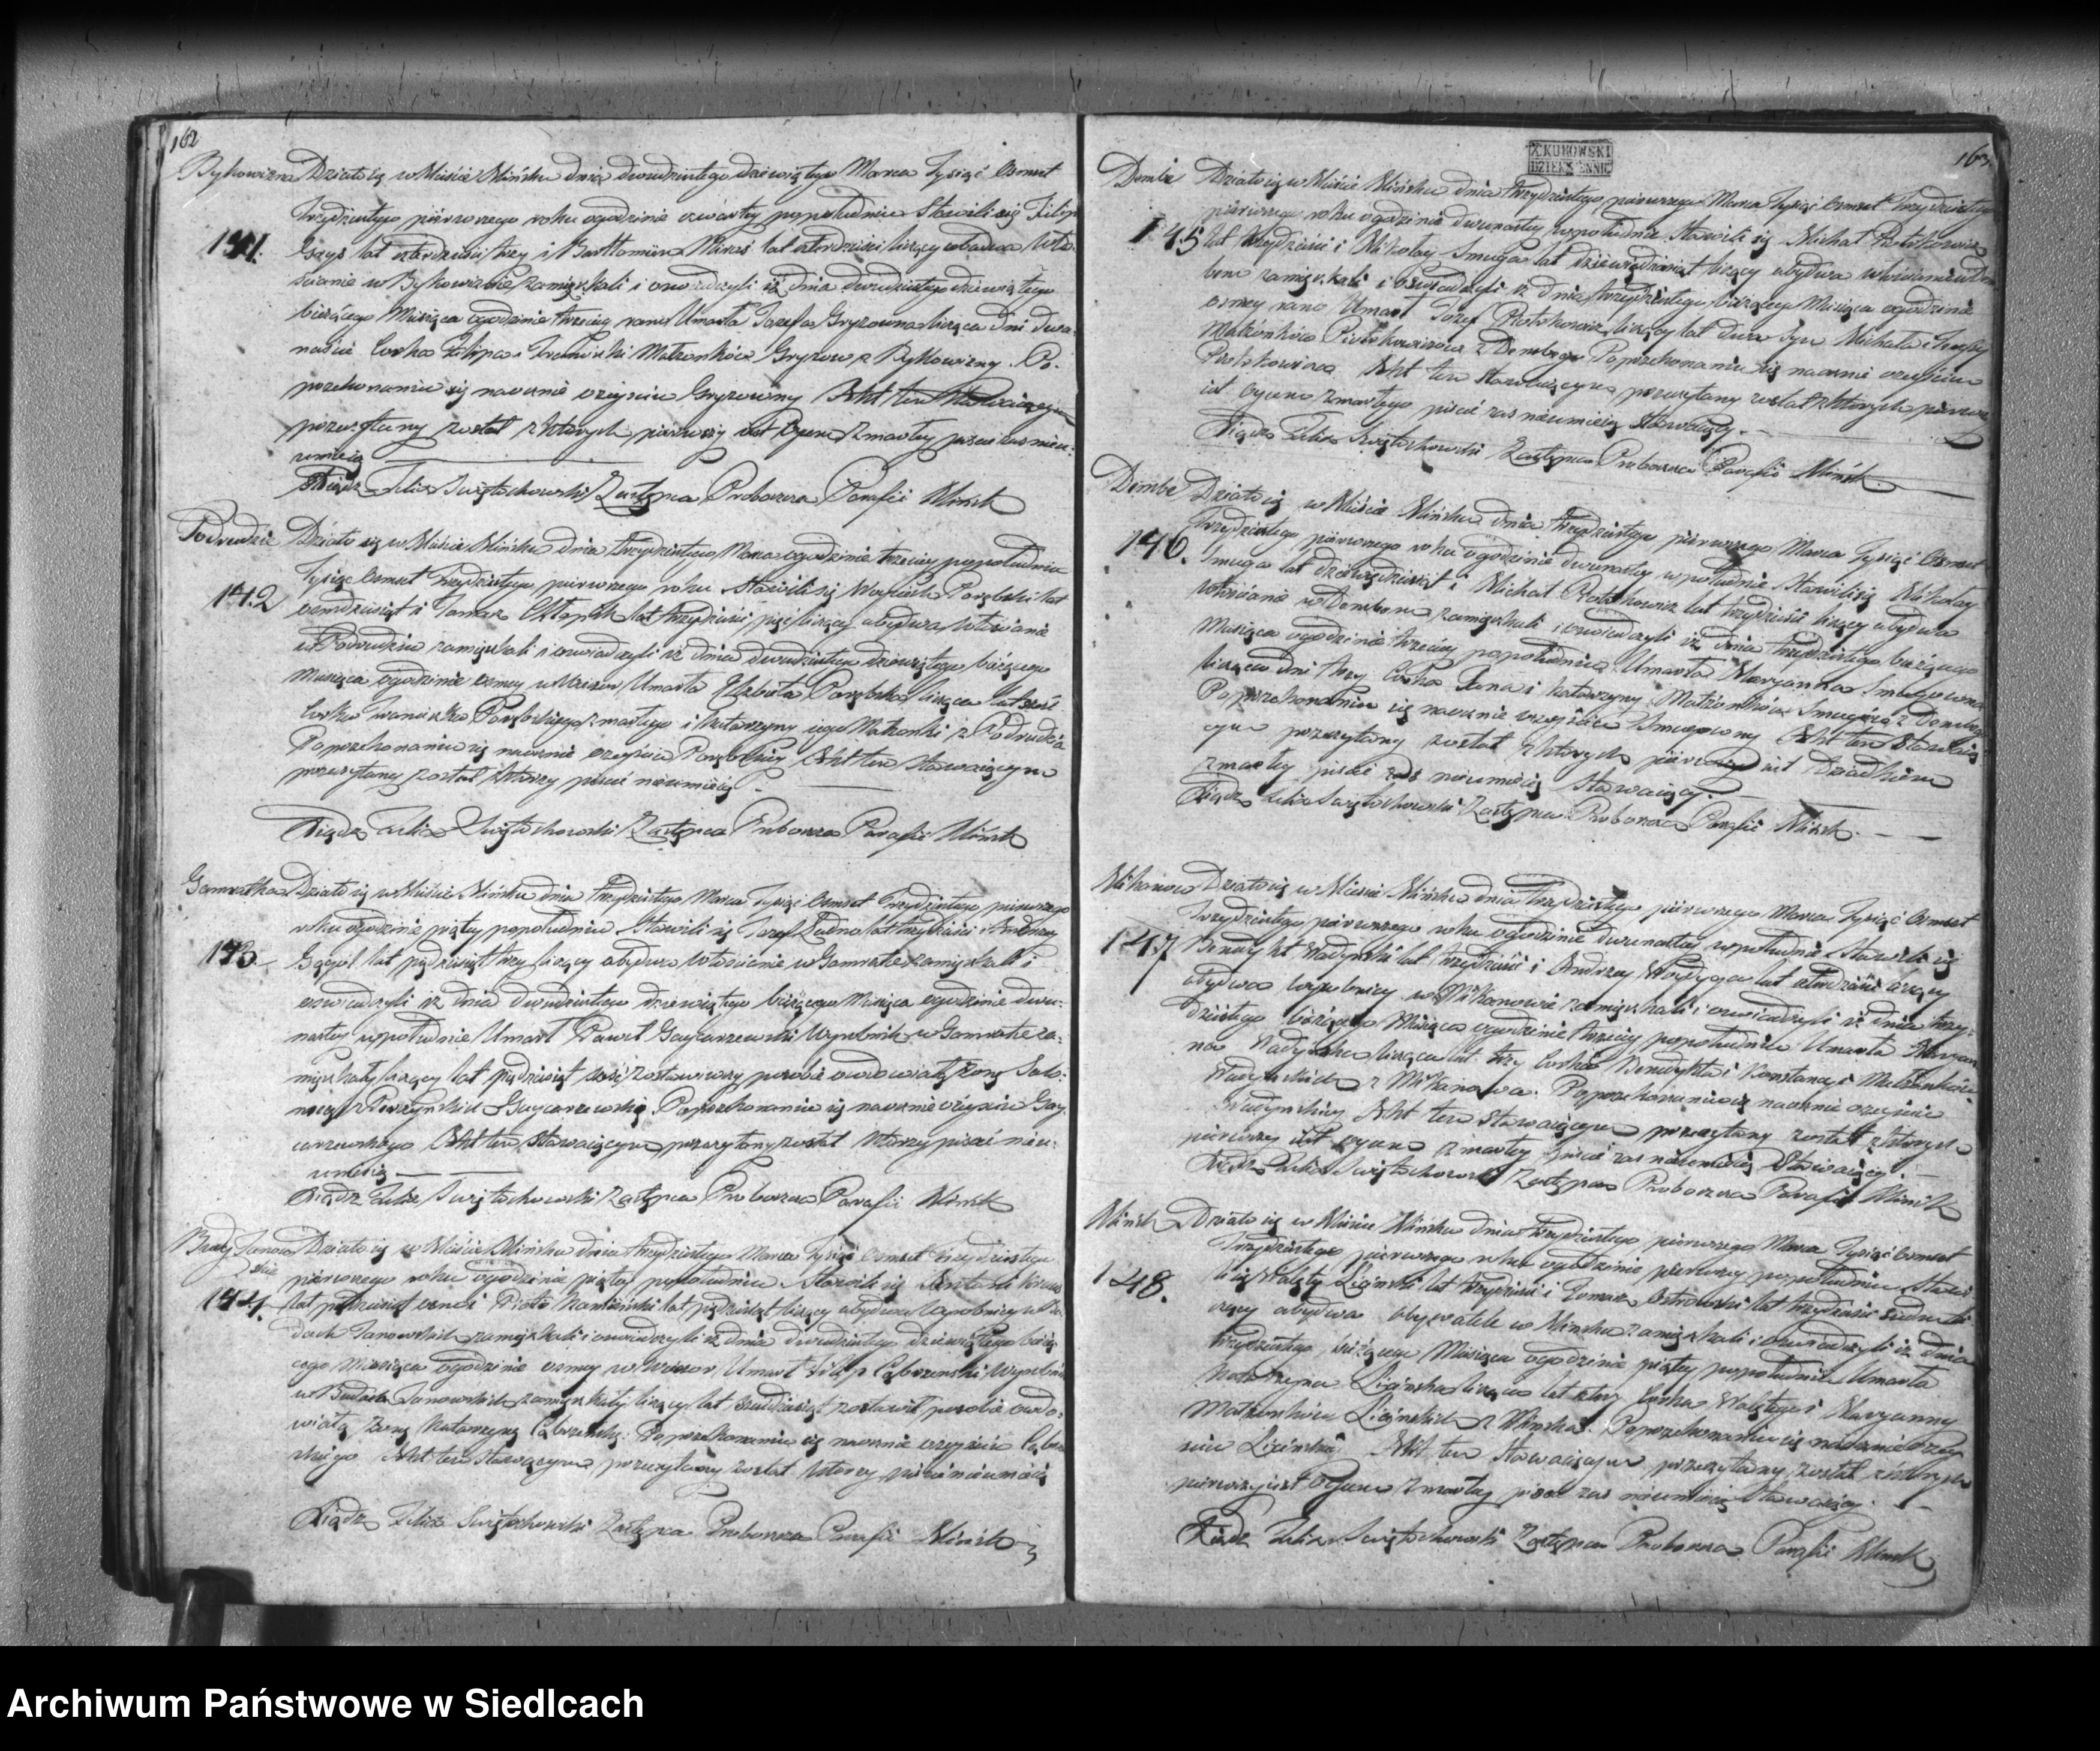 162
Bykowizna Działo się w Mieście Mińsku dnia dwudziestego dziewiątego Marca Tysiąc Osmset
Trzydziestego pierwszego roku o godzinie czwartej popołudniu Stawili się Filip
141. Gryz lat czterdzieści trzy i Bartłomiey lat czterdzieści liczący obadwa Wło-
ścianie w Bykowiźnie zamięszkali i oswiadczyli iż dnia dwudziestego dziewiątego
bieżącego Miesiąca o godzinie trzeciey rano Umarła Jozefa Gryzowna licząca dni dwa-
naście Corka Filipa i Małżonków Gryzow z Bykowizny. Po-
przekonaniu się naocznie o zeyściu Gryzowny Akt ten Stawaiącym
przeczytany został z których pierwszy iest Oycem Zmarłey pisać zas nieu-
mieią
Xiądz Felix Swiętochowski Zastępca Proboszcza Parafii Mińsk
Podrudzie Działo się w Mieście Mińsku dnia trzydziestego Marca o godzinie trzeciey popołudniu
Tysiąc Osmset Trzydziestego pierwszego roku Stawili się Woyciech Porębski lat
142 osmdziesiąt i Tomasz lat trzydzieści pięć liczący obydwa Włościanie
w Podrudziu zamięszkali i oswiadczyli iż dnia dwudziestego dziewiątego bieżącego
Miesiąca o godzinie osmey w Wieczor Umarła Elżbieta Porębska licząca lat sześć
Corka Franciszka Porębskiego zmarłego i Katarzyny iego Małżonki z Podrudzia
Poprzekonaniu się naocznie o zeyściu Porębskiey Akt ten Stawaiącym
przeczytany został którzy pisać nieumieią.
Xiądz Felix Swiętochowski Zastępca Proboszcza Parafii Mińsk
Gamratka Działo się w Mieście Mińsku dnia trzydziestego Marca Tysiąc Osmset Trzydziestego pierwszego
roku o godzinie piątey popołudniu Stawili się Jozef Zadno lat trzydzieści i Andrzey
143. Gągol lat pięćdziesiąt trzy liczący obydwa Włościanie w Gamratce zamięszkali i
oswiadczyli iż dnia dwudziestego dziewiątego bieżącego Miesiąca o godzinie dwu-
nastey w południe Umarł Paweł Gaycarzewski Wyrobnik w Gamratce za-
mięszkały liczący lat pięćdziesiąt sześć zostawiwszy po sobie owdowiałą żonę Salo-
meą z Gaycarzewską. Poprzekonaniu się naocznie o zeyściu Gay-
carzewskiego Akt ten Stawaiącym przeczytany został którzy pisać nieu-
mieią
Xiądz Felix Swiętochowski Zastępca Proboszcza Parafii Mińsk
Budy Janow Działo się w Mieście Mińsku dnia trzydziestego Marca Tysiąc Osmset Trzydziestego
skie pierwszego roku o godzinie piątey popołudniu Stawili się
144. lat pięćdziesiąt osm i Piotr lat pięćdziesiąt liczący obydwa Wyrobnicy w Bu-
dach Janowskich zamięszkali i oswiadczyli iż dnia dwudziestego dziewiątego bieżą-
cego Miesiąca o godzinie osmey w Wieczor Umarł Filip Wyrobnik
w Budach Janowskich zamięszkały liczący lat zostawił po sobie owdo-
wiałą Żonę Katarzynę Poprzekonaniu się naocznie o zeyściu
skiego Akt ten Stawaiącym przeczytany został którzy pisać nieumieią
Xiądz Felix Swiętochowski Zastępca Proboszcza Parafii Mińsk
X. KUROWSKI
DZIEKAN
163.
Dembe Działo się w Mieście Mińsku dnia trzydziestego pierwszego Marca Tysiąc Osmset Trzydziestego
pierwszego roku o godzinie dwunastey w południe Stawili się Michał Piotrkowicz
145 lat trzydzieści i Mikołay Smuga lat dziewiędziesiąt liczący obydwa włościanie w Dem-
bem zamięszkali i oswiadczyli iż dnia trzydziestego bieżącego Miesiąca o godzinie
osmey rano Umarł Jozef Piotrkowicz liczący lat dwa Syn Michała i
Małżonków Piotrkowiczow z Dembego Poprzekonaniu się naocznie o zeyściu
Piotrkowicza Akt ten Stawaiącym przeczytany został z których pierwszy
iest Oycem Zmarłego pisać zas nieumieią Stawaiący.
Xiądz Felix Swiętochowski Zastępca Proboszcza Parafii Mińsk
Dembe Działo się w Mieście Mińsku dnia trzydziestego pierwszego Marca Tysiąc Osmset
Trzydziestego pierwszego roku o godzinie dwunastey w południe Stawili się Mikołay
146. Smuga lat dziewiędziesiąt i Michał Piotrkowicz lat trzydzieści liczący obydwa
Włościanie w Dembem zamięszkali i oswiadczyli iż dnia trzydziestego bieżącego
Miesiąca o godzinie trzeciey popołudniu Umarła Maryanna Smugowna
licząca dni trzy Corka Jana i Katarzyny Małżonków Smugów z Dembego
Poprzekonaniu się naocznie o zeyściu Smugowny Akt ten Stawaią-
cym przeczytany został z których pierwszy iest Dziadkiem
Zmarłey pisać zas nieumieią Stawaiący.
Xiądz Felix Swiętochowski Zastępca Proboszcza Parafii Mińsk.
Mikanow Działo się w Mieście Mińsku dnia Trzydziestego pierwszego Marca Tysiąc Osmset
Trzydziestego pierwszego roku o godzinie dwunastey w południe Stawili się
147 Benedykt Wadyński lat trzydzieści i Andrzey lat czterdzieści liczący
obydwa wyrobnicy w Mikanowie zamięszkali i oswiadczyli iż dnia trzy-
dziestego bieżącego Miesiąca o godzinie trzeciey popołudniu Umarła Maryan-
na Wadyńska licząca lat trzy Corka Benedykta i Konstancyi Małżonków
Wadyńskich z Mikanowa. Poprzekonaniu się naocznie o zeyściu
Wadyńskiey Akt ten Stawaiącym przeczytany został z których
pierwszy iest oycem zmarłey pisać zas nieumieią Stawaiący.
Xiądz Felix Swiętochowski Zastępca Proboszcza Parafii Mińsk
Mińsk Działo się w Mieście Mińsku dnia trzydziestego pierwszego Marca Tysiąc Osmset
Trzydziestego pierwszego roku o godzinie pierwszey popołudniu Stawi-
148. li się Walęty Liciński lat trzydzieści i Tomasz Ostrowski lat trzydzieści siedm li-
czący obydwa obywatele w Mińsku zamięszkali i oswiadczyli iż dnia
trzydziestego bieżącego Miesiąca o godzinie piątey popołudniu Umarła
Katarzyna Licińska licząca lat Corka Walętego i Maryanny
Małżonków Licińskich z Mińska. Poprzekonaniu się naocznie o zey-
ściu Licińskiey Akt ten Stawaiącym przeczytany został z których
pierwszy iest Oycem Zmarłey pisać zas nieumieią Stawaiący.
Xiądz Felix Swiętochowski Zastępca Proboszcza Parafii Mińsk
Archiwum Państwowe w Siedlcach